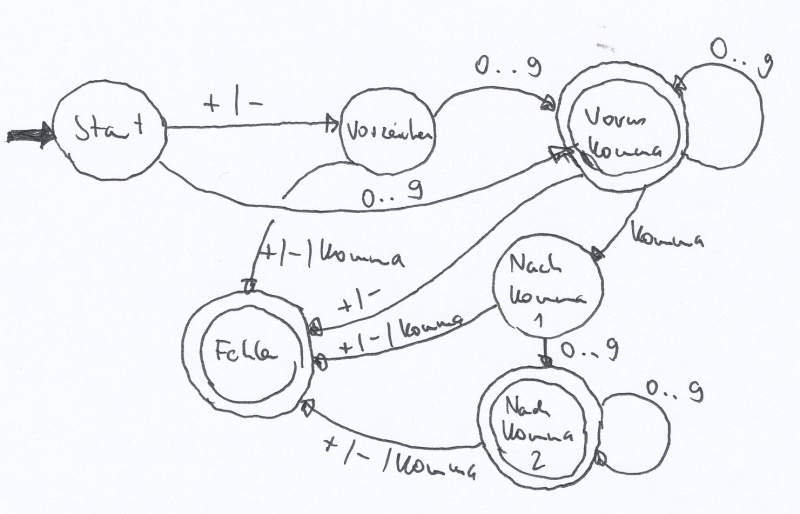 0..9
0..9
+/-
Start
Vorzeichen
Vorm
Komma
0..9
Komma
+/-/Komma
Nach
Komma
1
+/-
+/-/Komma
Fehler
0..9
0..9
Nach
Komma
2
+/-/Komma